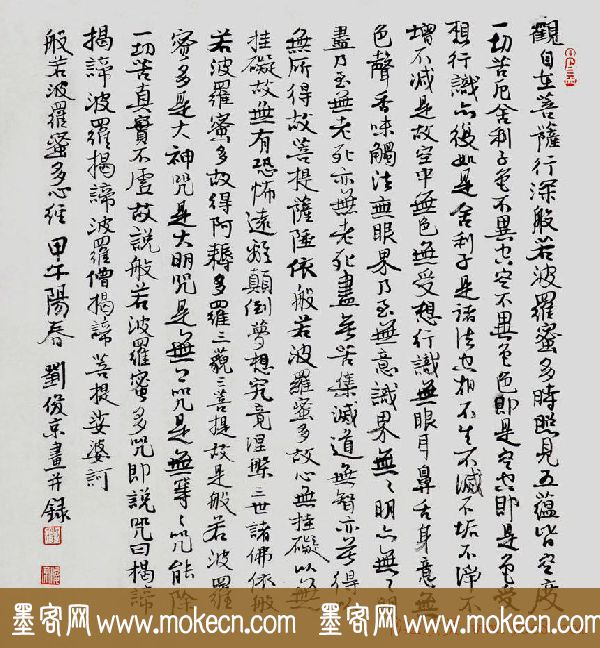 觀自在菩薩行深般若波羅蜜多時照見五蘊皆空度
一切苦厄舍利子色不異空空不異色色即是空空即是色受
想行識亦復如是舍利子是諸法空相不生不滅不垢不淨不
增不減是故空中無色無受想行識無眼耳鼻舌身意無
色聲香味觸法無眼界乃至無意識界無〻明亦無〻明
盡乃至無老死亦無老死盡無苦集滅道無智亦無得以
無所得故菩提薩陲依般若波羅蜜多故心無挂礙以無
挂礙故無有恐怖遠離顛倒夢想究竟涅槃三世諸佛依般
若波羅蜜多故得阿耨多羅三藐三菩提故是般若波羅
蜜多是大神咒是大明咒是無上咒是無等〻咒能除
一切苦真實不虛故說般若波羅蜜多咒即說咒曰揭諦
揭諦波羅揭諦波羅僧揭諦菩提娑婆訶
般若波羅蜜多心經 甲午陽春 劉俊京畫并錄
墨客网 www.mokecn.com 墨客网 www.mokecn.com